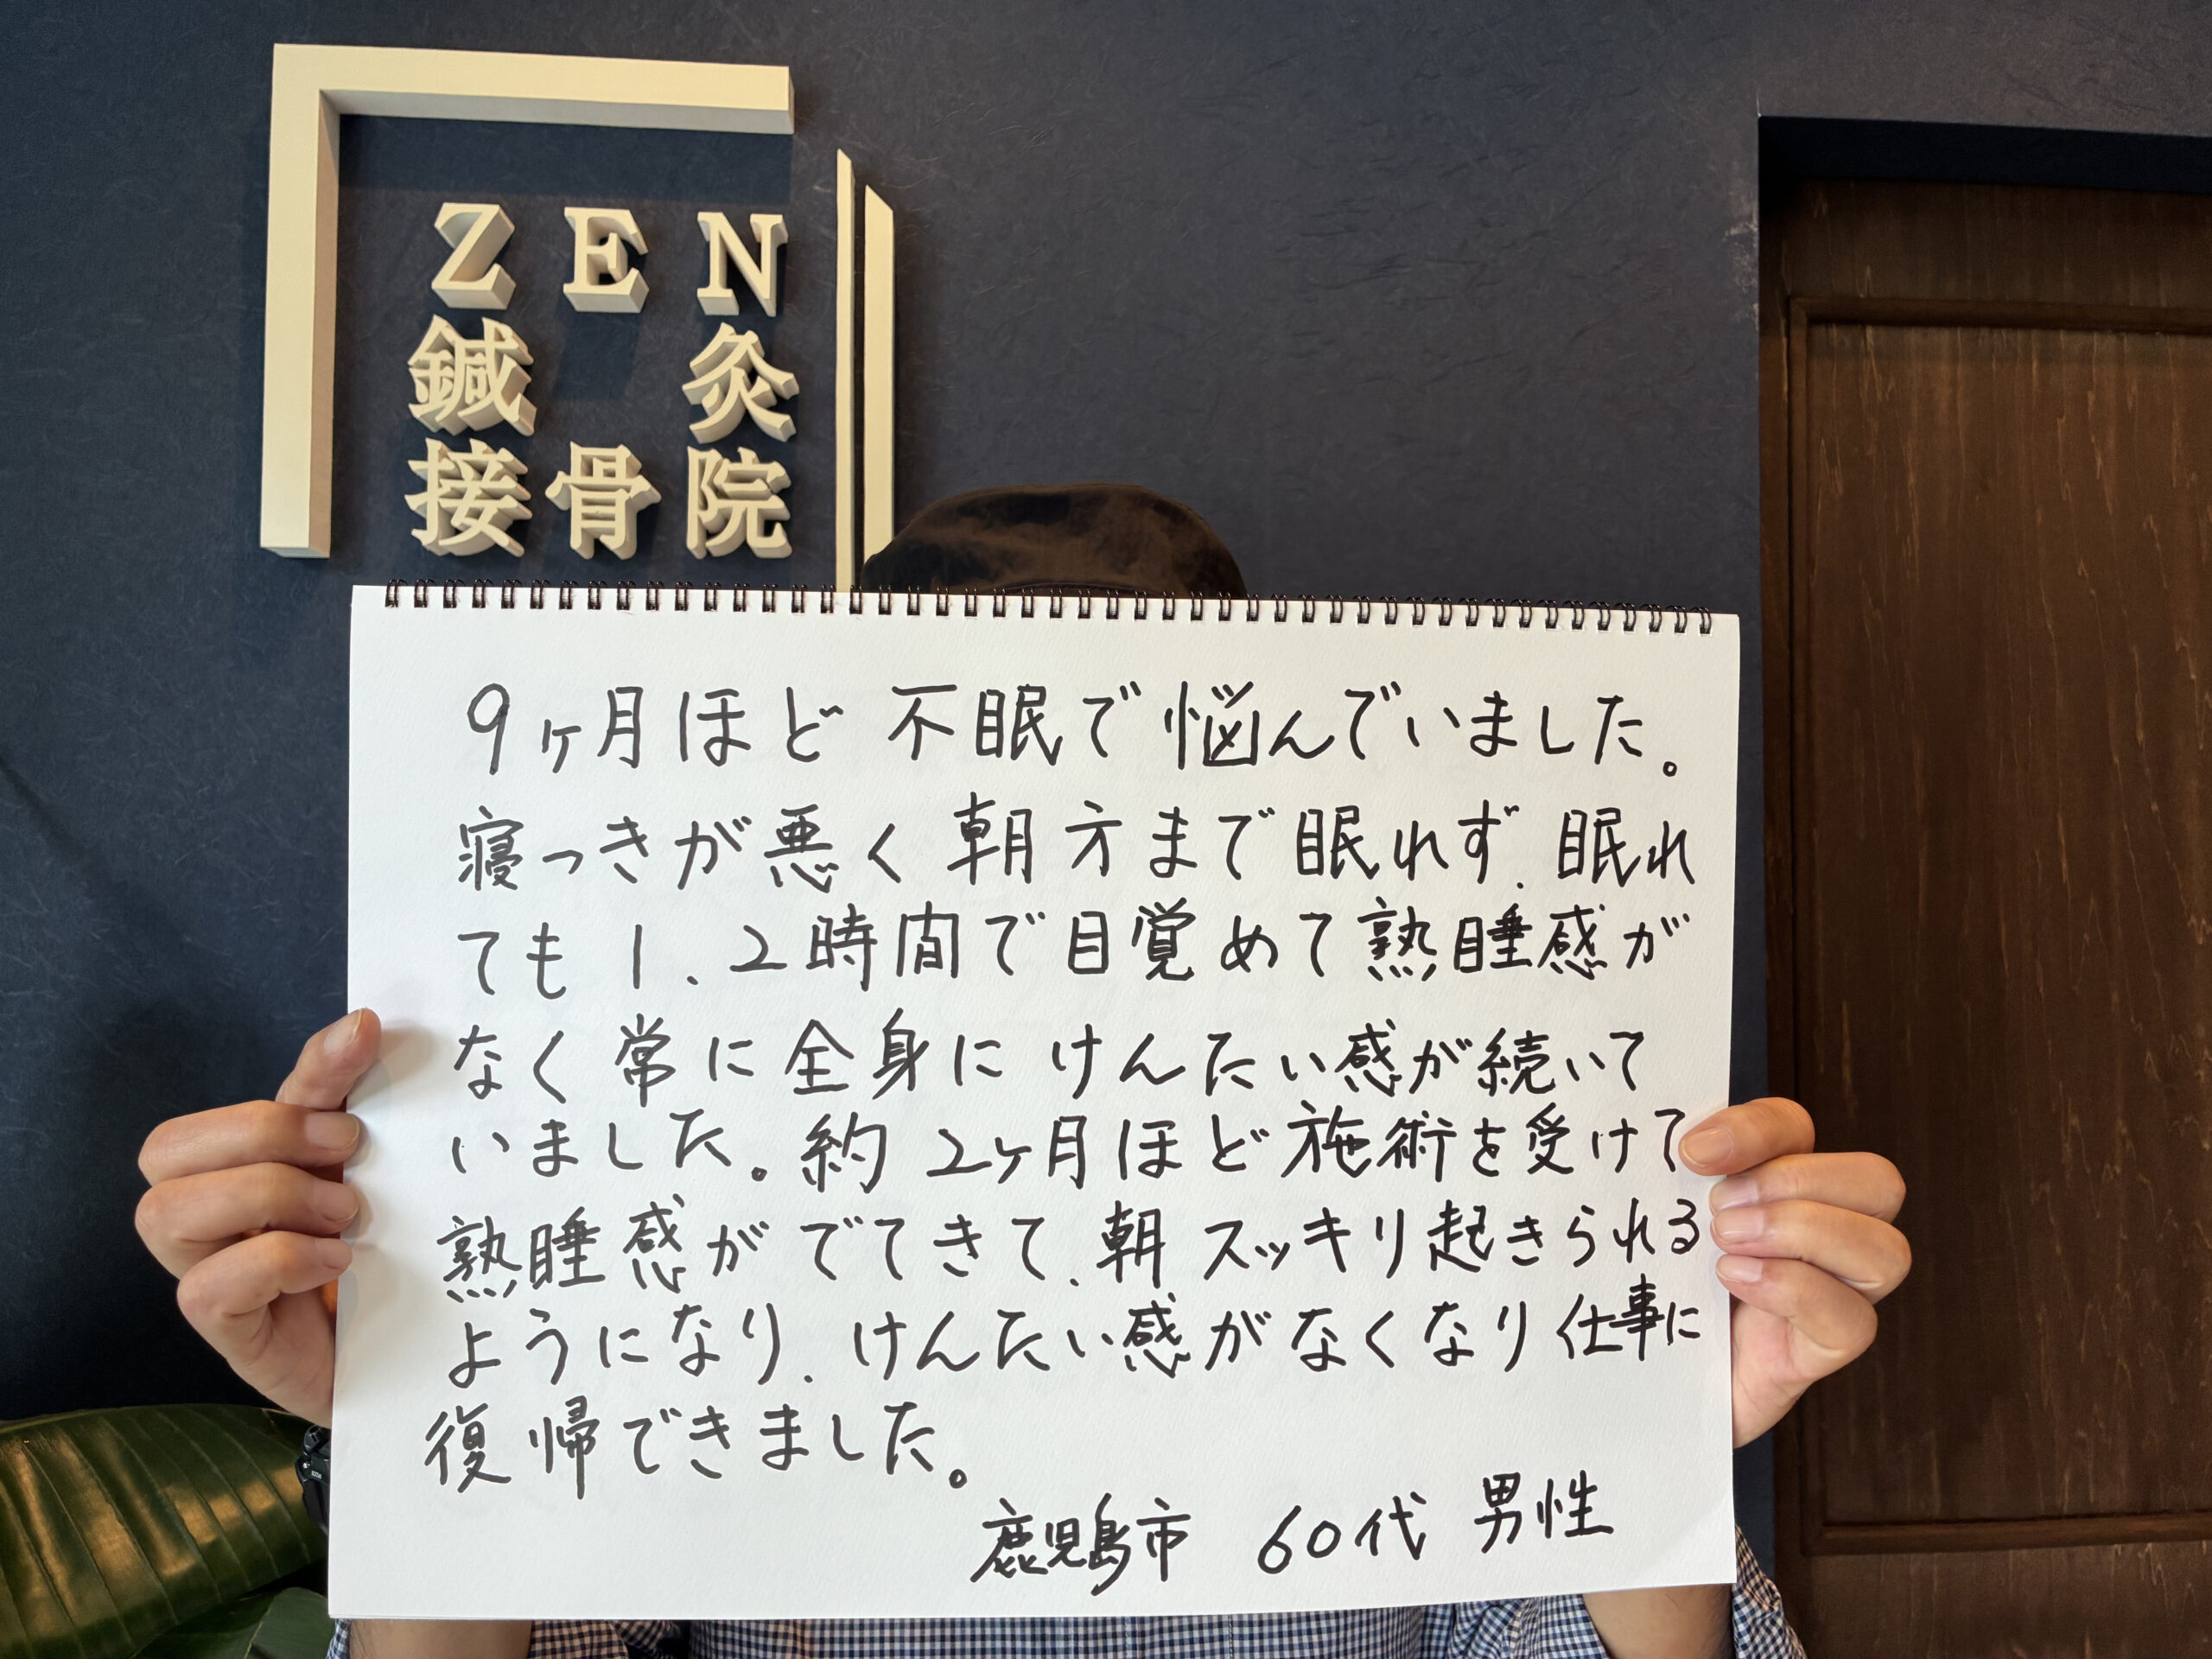 ZEN
鍼灸
接骨院
9ヶ月ほど不眠で悩んでいました。
寝つきが悪く朝方まで眠れず、眠れ
ても1、2時間で目覚めて熟睡感が
なく常に全身にけんたい感が続いて
いました。約2ヶ月ほど施術を受けて
熟睡感がでてきて、朝スッキリ起きられる
ようになり、けんたい感がなくなり仕事に
復帰できました。
鹿児島市 60代 男性